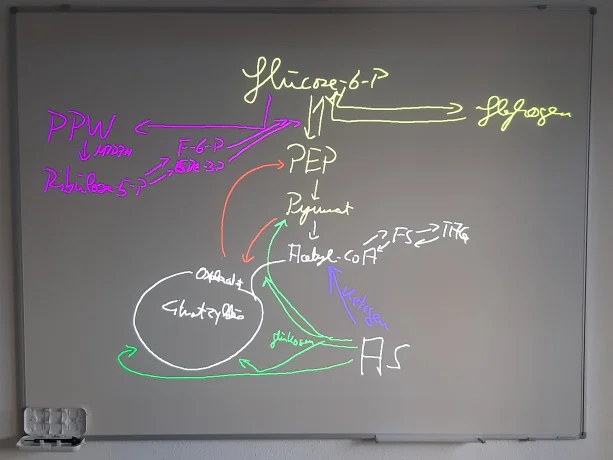 Glucose-6-P
Glykogen
PPW
NADPH
F-6-P
GA-3P
Ribulose-5-P
PEP
Pyruvat
Acetyl-CoA
FS
TAG
Oxalat
Citratzyklus
Ketogen
glukogen
AS